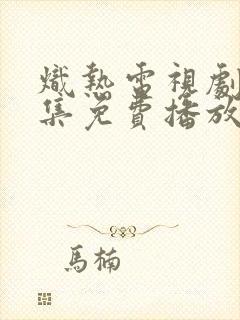 熾熱電視劇
集免費播放
馬楠